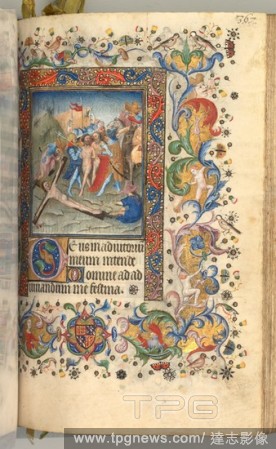 Deus in adiutoriu
meum intende
Domine ad ad
iuuandum me festina.
TPG
www.tpgnews.com/ 達志影像